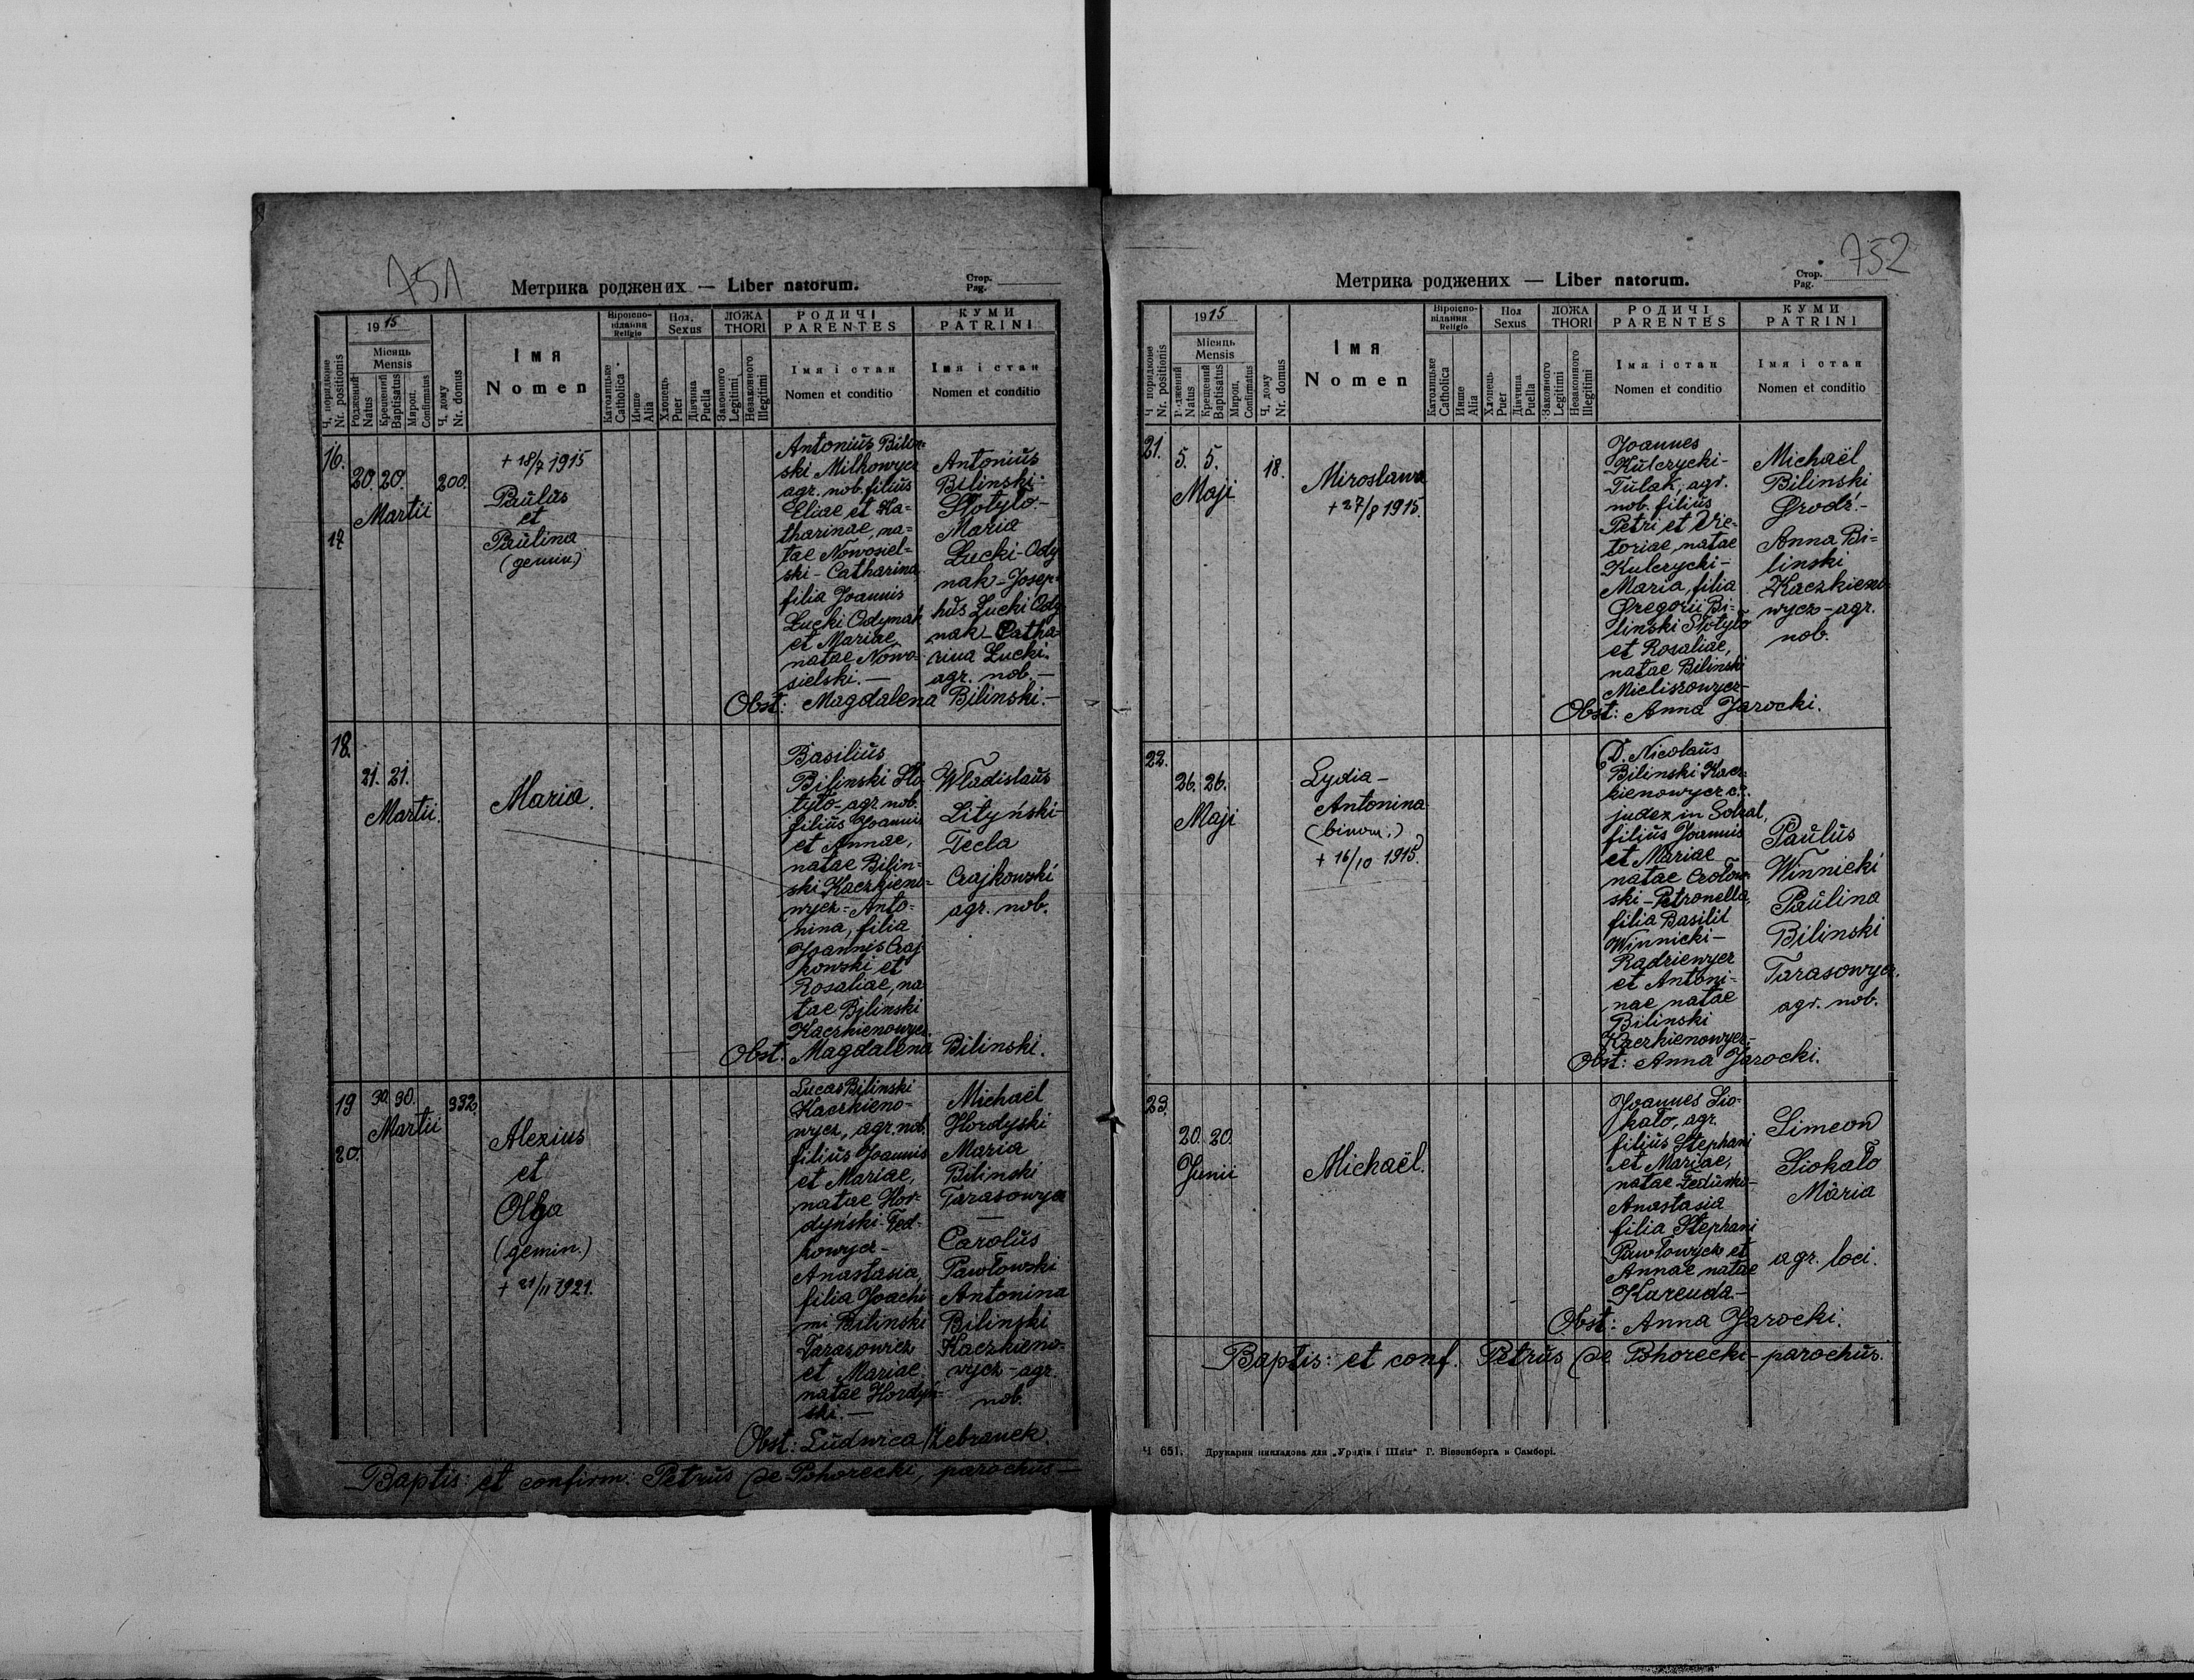 751
Метрика роджених — Liber natorum.
Стор.
Pag.
Ч. порядкове
Nr. positionis
1915
Місяць
Mensis
Роджений
Natus
Крещений
Baptisatus
Мироп.
Confirmatus
Ч. дому
Nr. domus
Імя
Nomen
Віроісповідання
Religio
Католицьке
Catholica
Инше
Alia
Пол.
Sexus
Хлопець
Puer
Дівчина
Puella
ЛОЖА
THORI
Законного
Legitimi
Незаконного
Illegitimi
РОДИЧІ
PARENTES
Імя і стан
Nomen et conditio
КУМИ
PATRINI
Імя і стан
Nomen et conditio
16.
17
20. 20.
Martii
200.
+ 18/7 1915
Paulus
et
Paulina
(gemin.)
Antonius Bilin-
ski Mitkowycz
agr. nob. filius
Eliae et Ka-
tharinae, na-
tae Nowosiel-
ski - Catharina
filia Joannis
Łucki Odynak
et Mariae
natae Nowo-
sielski. —
Antonius
Bilinski -
Słotyło. -
Maria
Łucki - Ody
nak - Josep-
hus Łucki Ody
nak - Catha-
rina Łucki.
agr. nob. —
Obst: Magdalena Bilinski. —
18.
21. 21.
Martii.
Maria.
Basilius
Bilinski Sło-
tyło - agr. nob.
filius Joannis
et Annae,
natae Bilin-
ski Kaczkieno-
wycz = Anto-
nina, filia
Joannis Czaj-
kowski et
Rosaliae, na
tae Bilinski
Kaczkienowycz.
Wladislaus
Lityński -
Tecla
Czajkowski
agr. nob.
Obst. Magdalena Bilinski.
19
20.
30. 30.
Martii
332.
Alexius
et
Olga
(gemin.)
+ 21/11 1921.
Lucas Bilinski
Kaczkieno-
wycz, agr. nob.
filius Joannis
et Mariae,
natae Hor-
dyński Fed-
kowycz -
Anastasia,
filia Joachi
mi Bilinski
Tarasowicz
et Mariae
natae Hordyń-
ski. —
Michaël
Hordyski
Maria
Bilinski
Tarasowycz
—
Carolus
Pawłowski
Antonina
Bilinski
Kaczkieno-
wycz - agr.
nob.
Obst: Ludwica Żebranek.
Baptis: et confirm. Petrus de Pohorecki, parochus —
752
Метрика роджених — Liber natorum.
Стор.
Pag.
Ч. порядкове
Nr. positionis
1915
Місяць
Mensis
Роджений
Natus
Крещений
Baptisatus
Мироп.
Confirmatus
Ч. дому
Nr. domus
Імя
Nomen
Віроісповідання
Religio
Католицьке
Catholica
Инше
Alia
Пол
Sexus
Хлопець
Puer
Дівчина
Puella
ЛОЖА
THORI
Законного
Legitimi
Незаконного
Illegitimi
РОДИЧІ
PARENTES
Імя і стан
Nomen et conditio
КУМИ
PATRINI
Імя і стан
Nomen et conditio
21.
5. 5.
Maji
18.
Mirosława
+ 27/8 1915.
Joannes
Kulczycki -
Tulak, agr.
nob. filius
Petri et Vic-
toriae, natae
Kulczycki -
Maria, filia
Gregorii Bi-
linski Słotyło
et Rosaliae,
natae Bilinski
Mieliszowycz -
Michaël
Bilinski
Grodź. -
Anna Bi=
linski
Kaczkieno-
wycz - agr.
nob.
Obst: Anna Jarocki.
22.
26. 26.
Maji
Lydia -
Antonina
(binom.)
+ 16/10 1915.
D. Nicolaus
Bilinski Kacz-
kienowycz c.r.
judex in Sokal,
filius Joannis
et Mariae
natae Czołow-
ski - Petronella,
filia Basilii
Winnicki -
Radziewycz
et Antoni-
nae natae
Bilinski
Kaczkienowycz -
Paulus
Winnicki
Paulina
Bilinski
Tarasowycz.
agr. nob.
Obst: Anna Jarocki.
23.
20. 20.
Junii
Michaël.
Joannes Sio-
kało, agr.
filius Stephani
et Mariae,
natae Fedunko -
Anastasia
filia Stephani
Pawłowycz et
Annae natae
Karenda. -
Simeon
Siokało
Maria
agr. loci.
Obst: Anna Jarocki.
Baptis: et conf. Petrus de Pohorecki - parochus.
Ч 651. Друкарня накладова для „Урядів і Шкіл" Г. Візенберґа в Самборі.